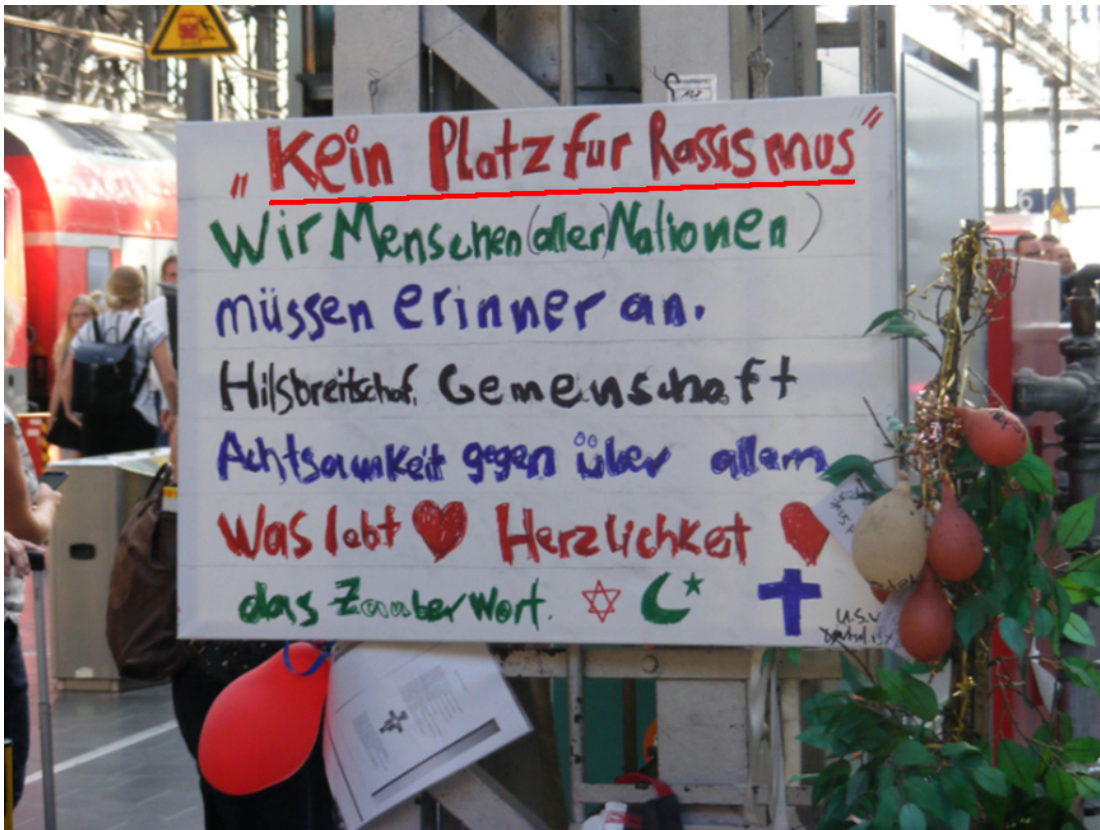 „Kein Platz fur Rassismus"
Wir Menschen (aller) Nationen)
müssen erinner an.
Hilsbreitschaf. Gemenschaft
Achtsamkeit gegen über allem
Was lebt Herzlichket
das Zauber Wort.
u.s.w
6